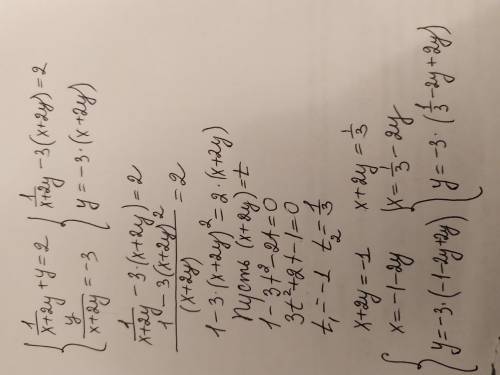 { 1/(x+2y) + y = 2 { 1/(x+2y) - 3(x+2y) = 2
{ y/(x+2y) = -3 { y = -3·(x+2y)
1/(x+2y) - 3·(x+2y) = 2
(1 - 3(x+2y)²)/(x+2y) = 2
1 - 3·(x+2y)² = 2·(x+2y)
Пусть (x+2y) = t
1 - 3t² - 2t = 0
3t² + 2t - 1 = 0
t₁ = -1 t₂ = 1/3
x+2y = -1 x+2y = 1/3
{ x = -1-2y { x = 1/3 - 2y
{ y = -3·(-1-2y+2y) { y = -3·(1/3-2y+2y)